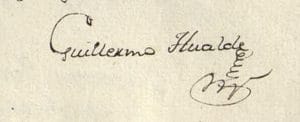 Guillermo Hualde